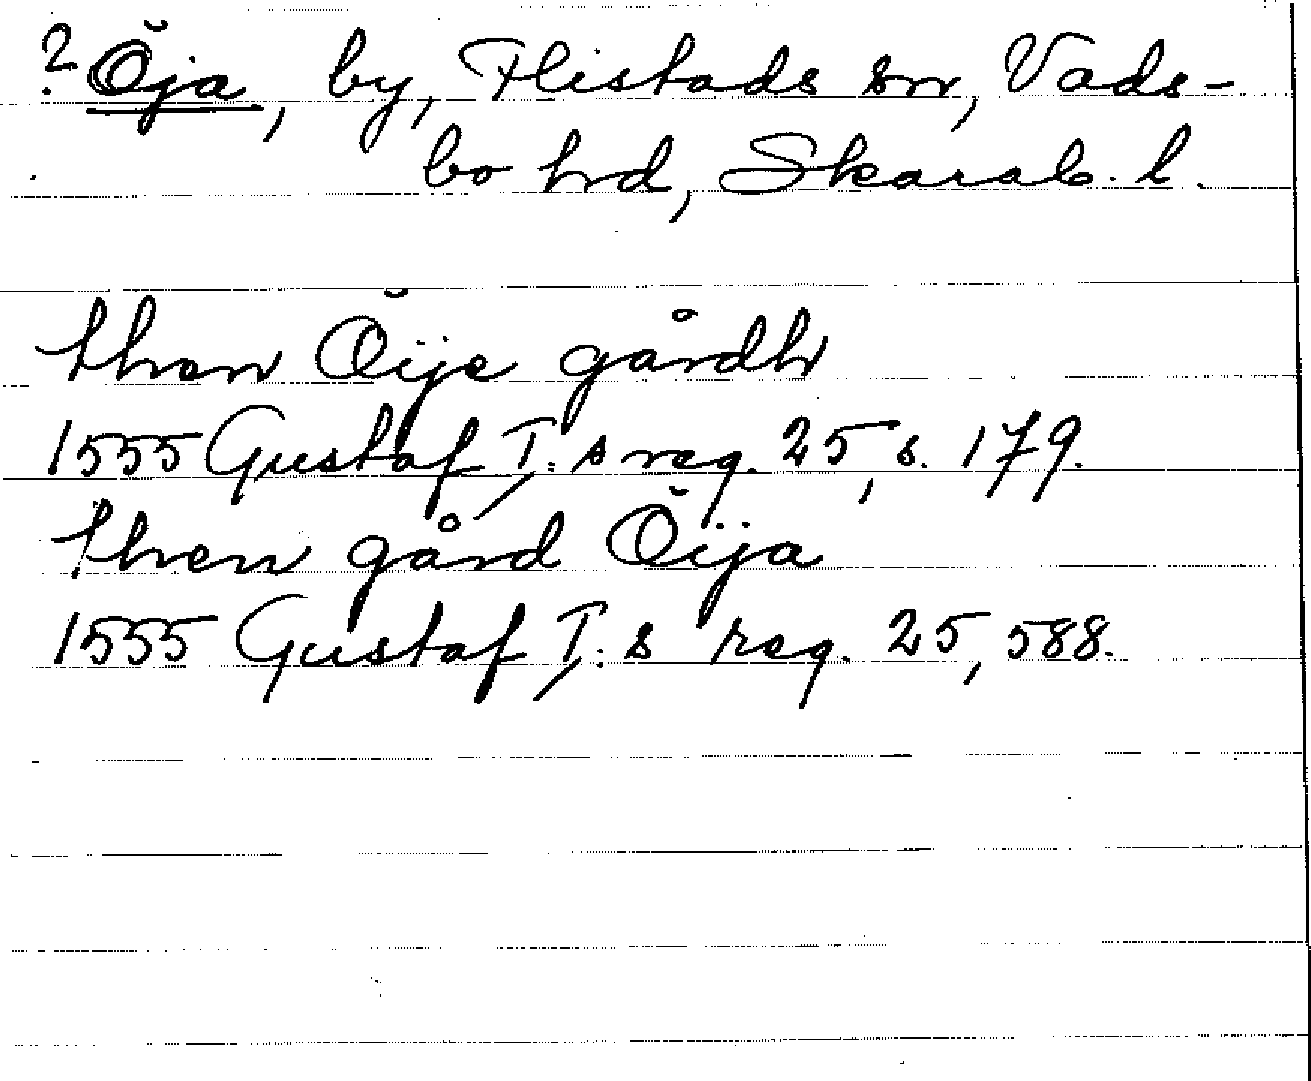 ? Öja, by, Flistads sn, Vads-
bo hrd, Skarab. l.
then Öije gårdh
1555 Gustaf I:s reg. 25, s. 179.
then gård Öija
1555 Gustaf I:s reg. 25, 588.